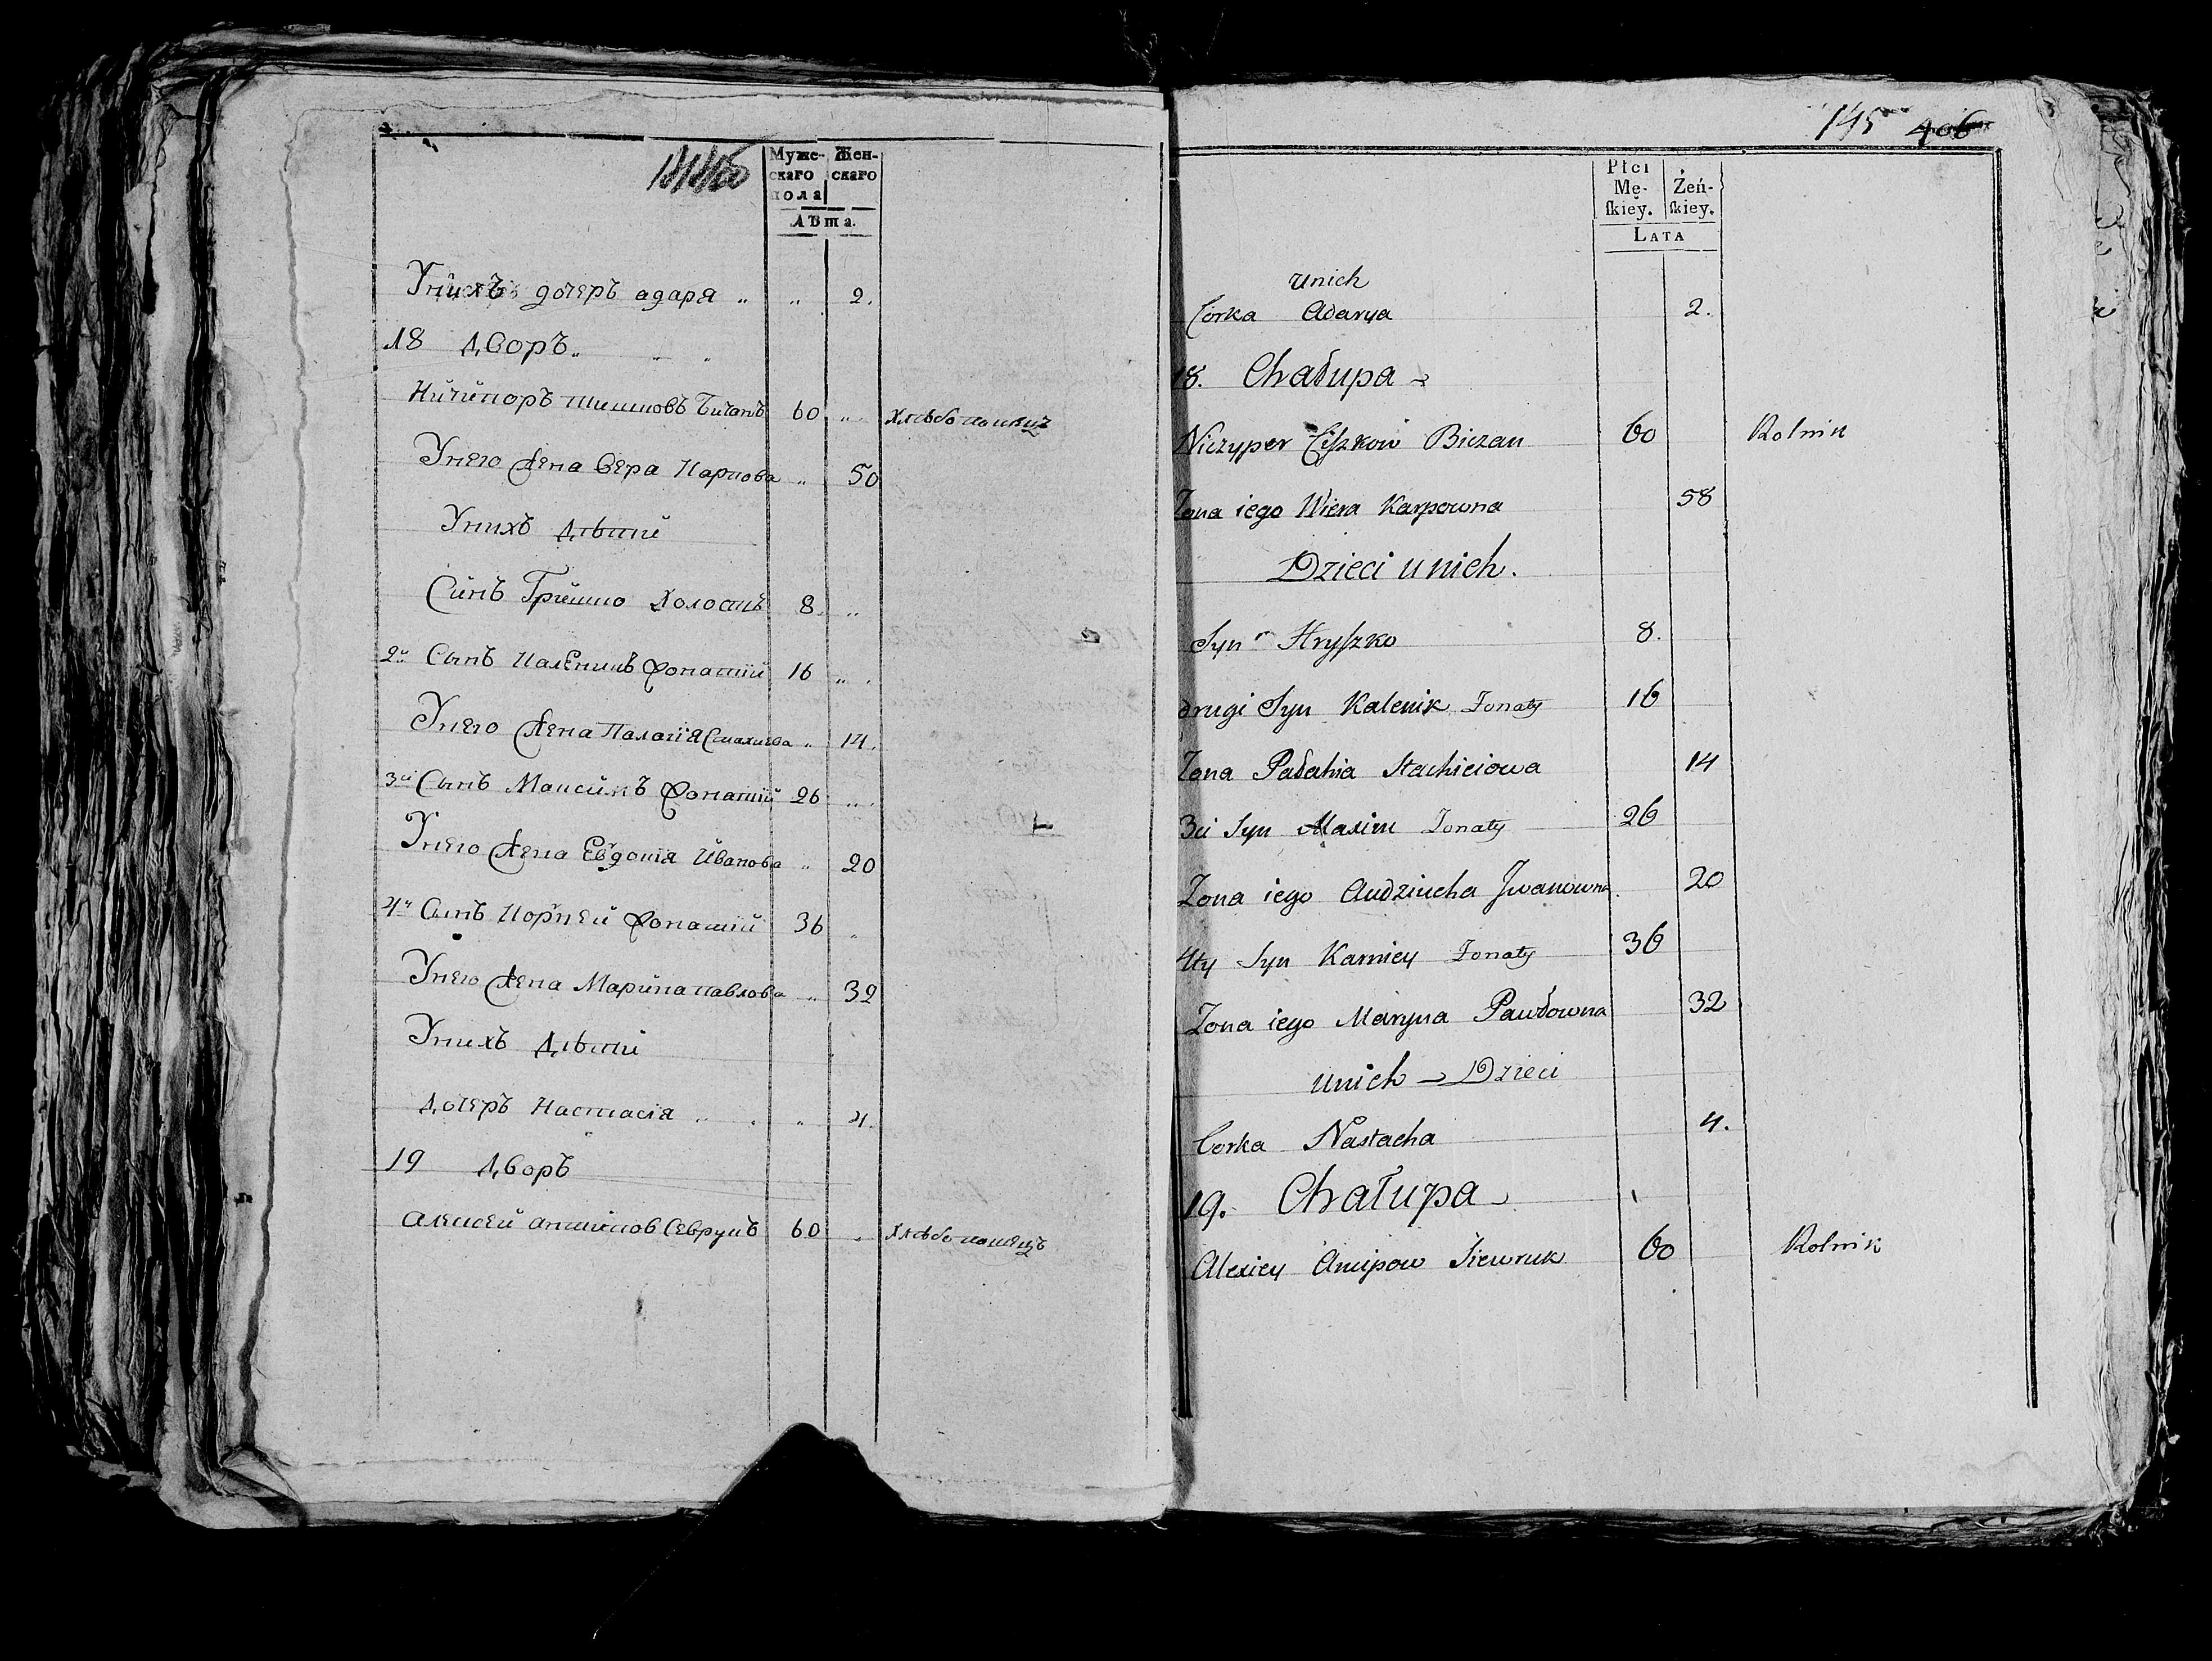 Муже-
скаго
пола
Жен-
скаго
Лѣта.
Унихъ дочеръ адаря „ „ 2.
18 дворъ „
Ничипоръ тишковъ Бичанъ 60 „ Хлѣбопашецъ
Унего жена Вера Карпова „ 50
Унихъ дѣти
Синъ Гришко Холостъ 8 „
2й Сынъ Каленикъ жонатий 16 „
Унего жена Палагія Стахиева „ 14.
3й Сынъ Максимъ жонатий 26 „
Унего жена Евдокия Иванова „ 20
4й Сынъ Корней жонатий 36 „
Унего жена Марина павлова „ 32
Унихъ дѣти
дочеръ Настасія „ „ 4.
19 дворъ
алексей Севрукъ 60 „ Хлѣбопашецъ
145 406
Płci
Mę-
skiey.
Żeń-
skiey.
Lata
unich
Corka Adarya 2.
18. Chałupa
Niczyper Ciszkow Biczan 60 Rolnik
Zona iego Wiera Karpowna 58
Dzieci unich.
Syn Hryszko 8.
drugi Syn Kalenik Zonaty 16
Zona Pałahia Stachiciowa 14
3ci Syn Maxim Zonaty 26
Zona iego Audziucha Jwanowna 20
4ty Syn Karniey Zonaty 36
Zona iego Maryna Pawłowna 32
unich Dzieci
Corka Nastacha 4.
19. Chałupa
Alexiey Siewruk 60 Rolnik